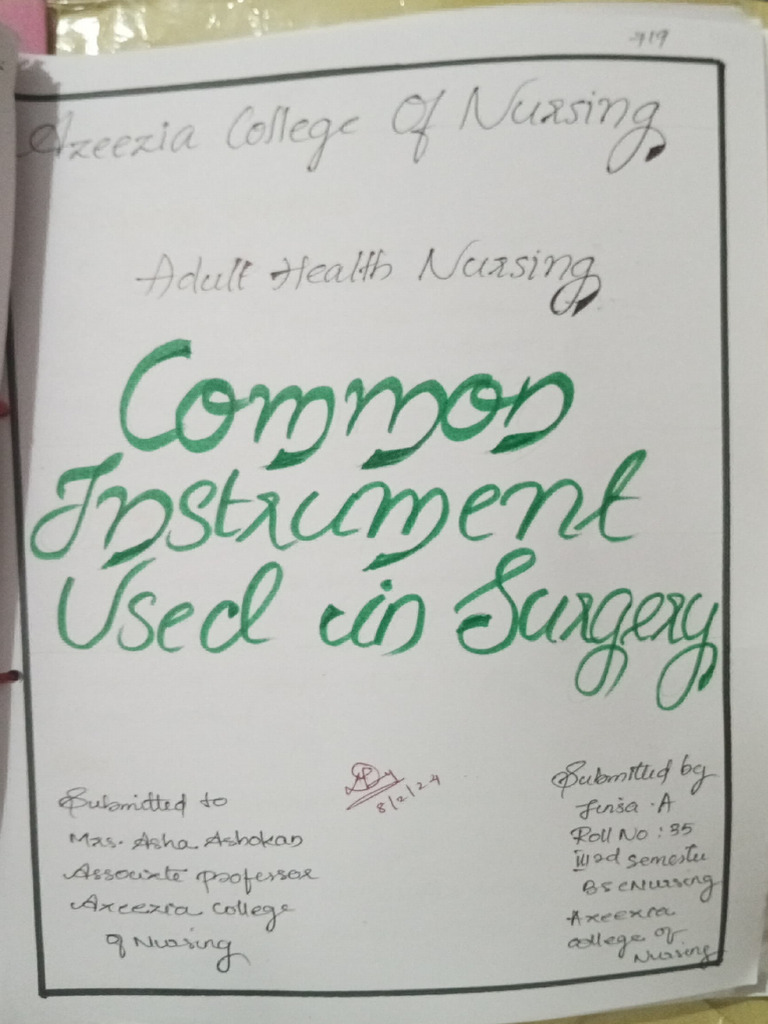 719
Azeezia College Of Nursing
Adult Health Nursing
Common
Instrument
Used in Surgery
8/2/24
Submitted to
Mrs. Asha Ashokan
Associate professor
Azeezia college
of Nursing
Submitted by
Jinsa . A
Roll No : 35
IIIrd semester
BSc Nursing
Azeezia
college of
Nursing